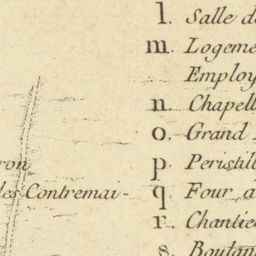 l. Salle d
m. Logeme
Employ
n. Chapell
o. Grand
p. Peristil
q. Four a
r. Chantie
s. Boulan
ron
les Contremai-